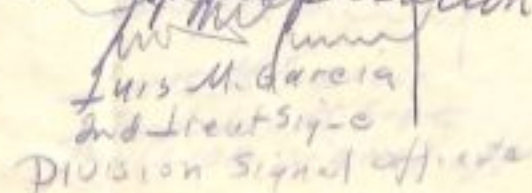 Luis M. Garcia
2nd Lieut Sig-C
Division Signal Officer